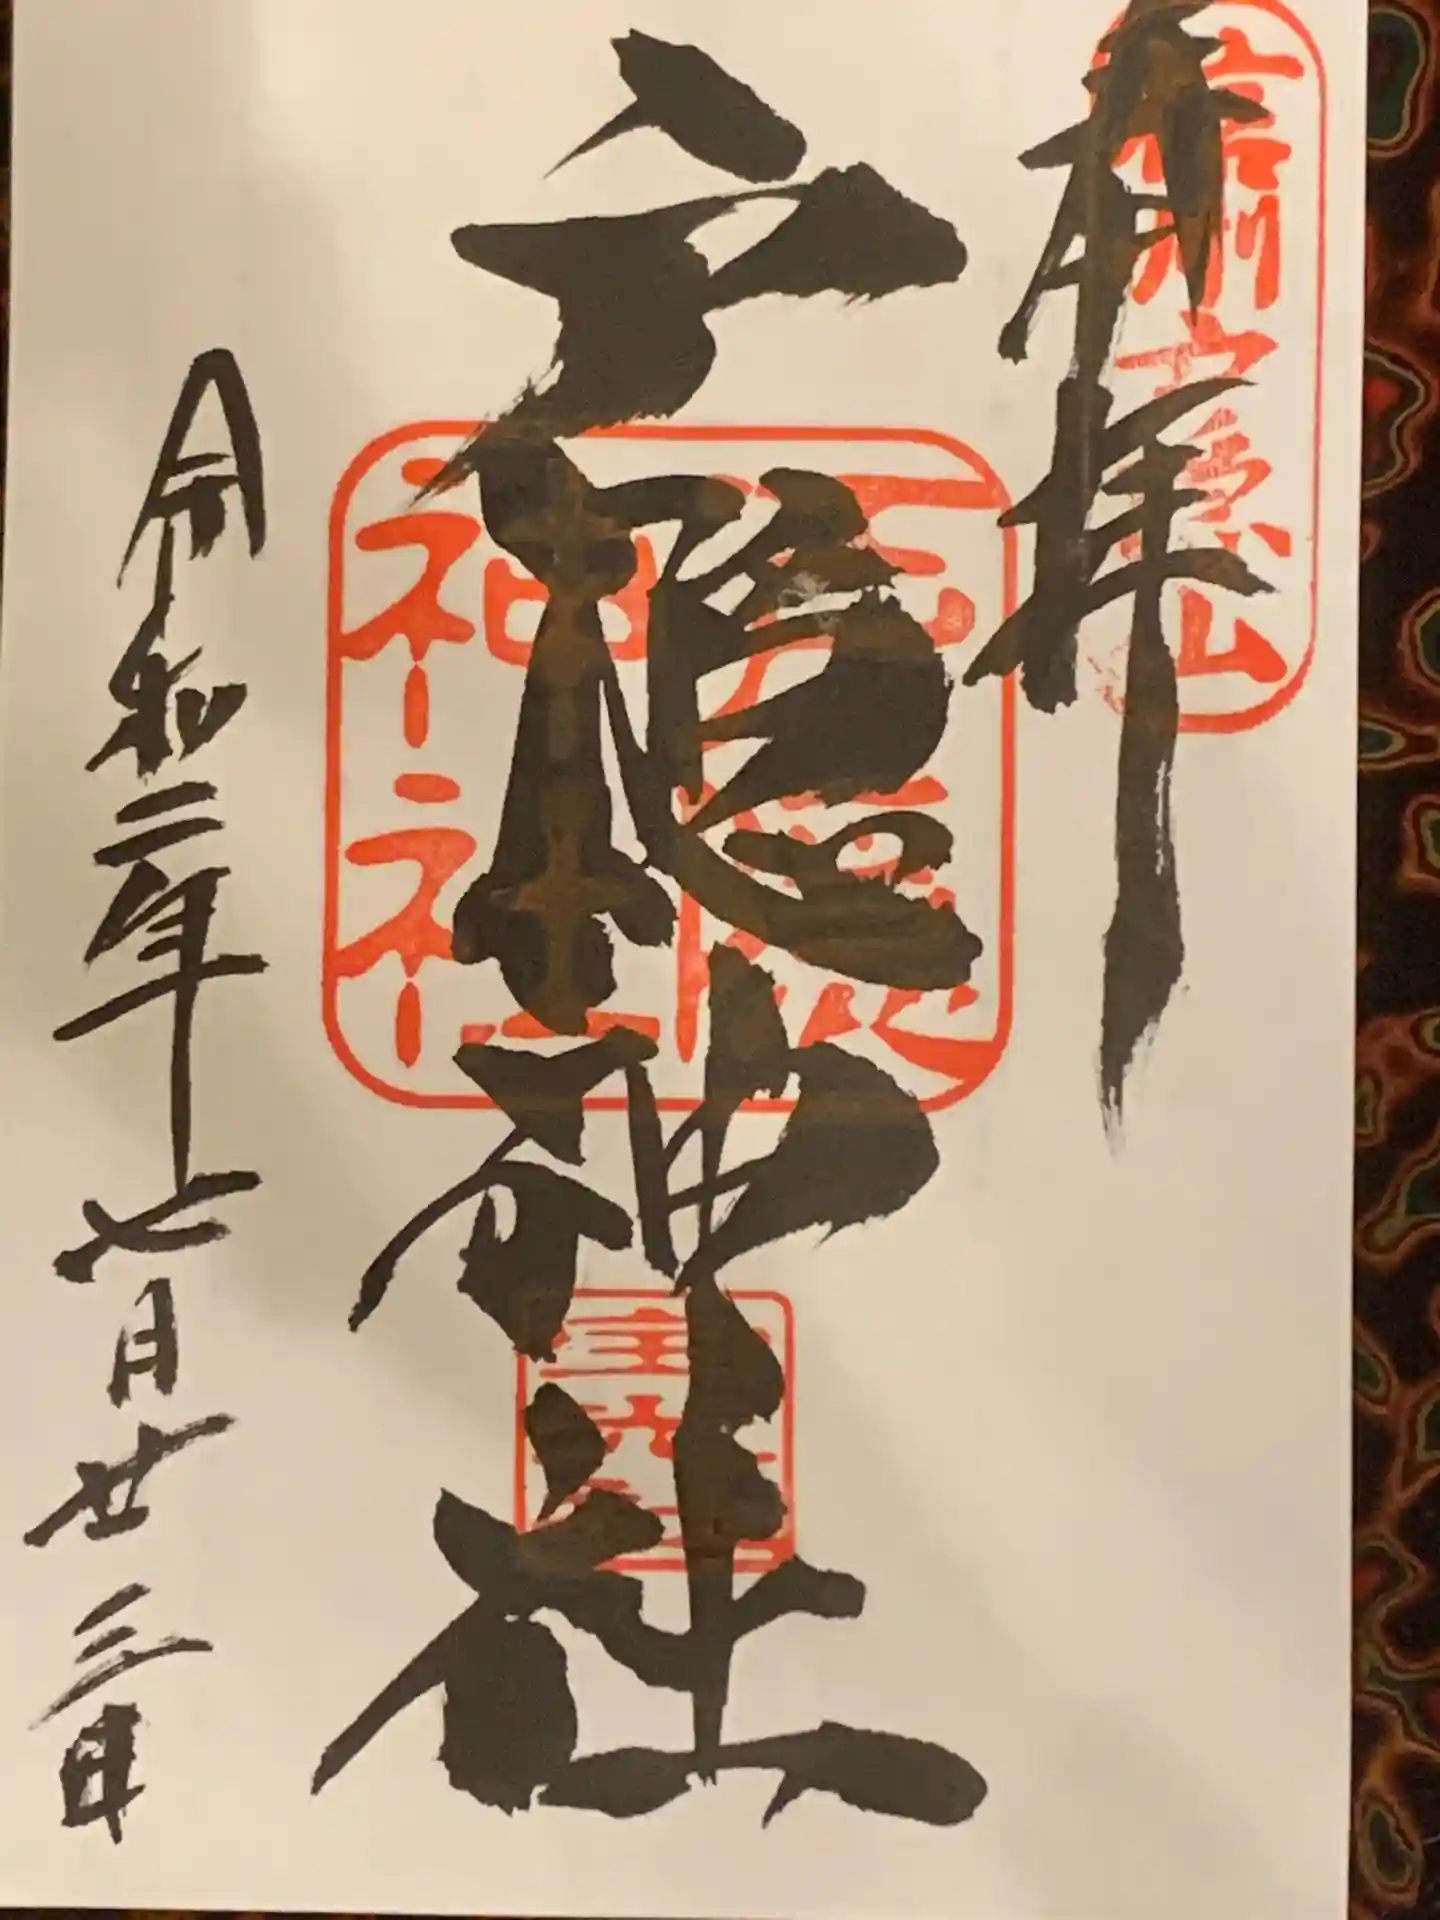 奉拝
信州戸隠山
戸隠神社
戸隠
神社
令和二年七月廿三日